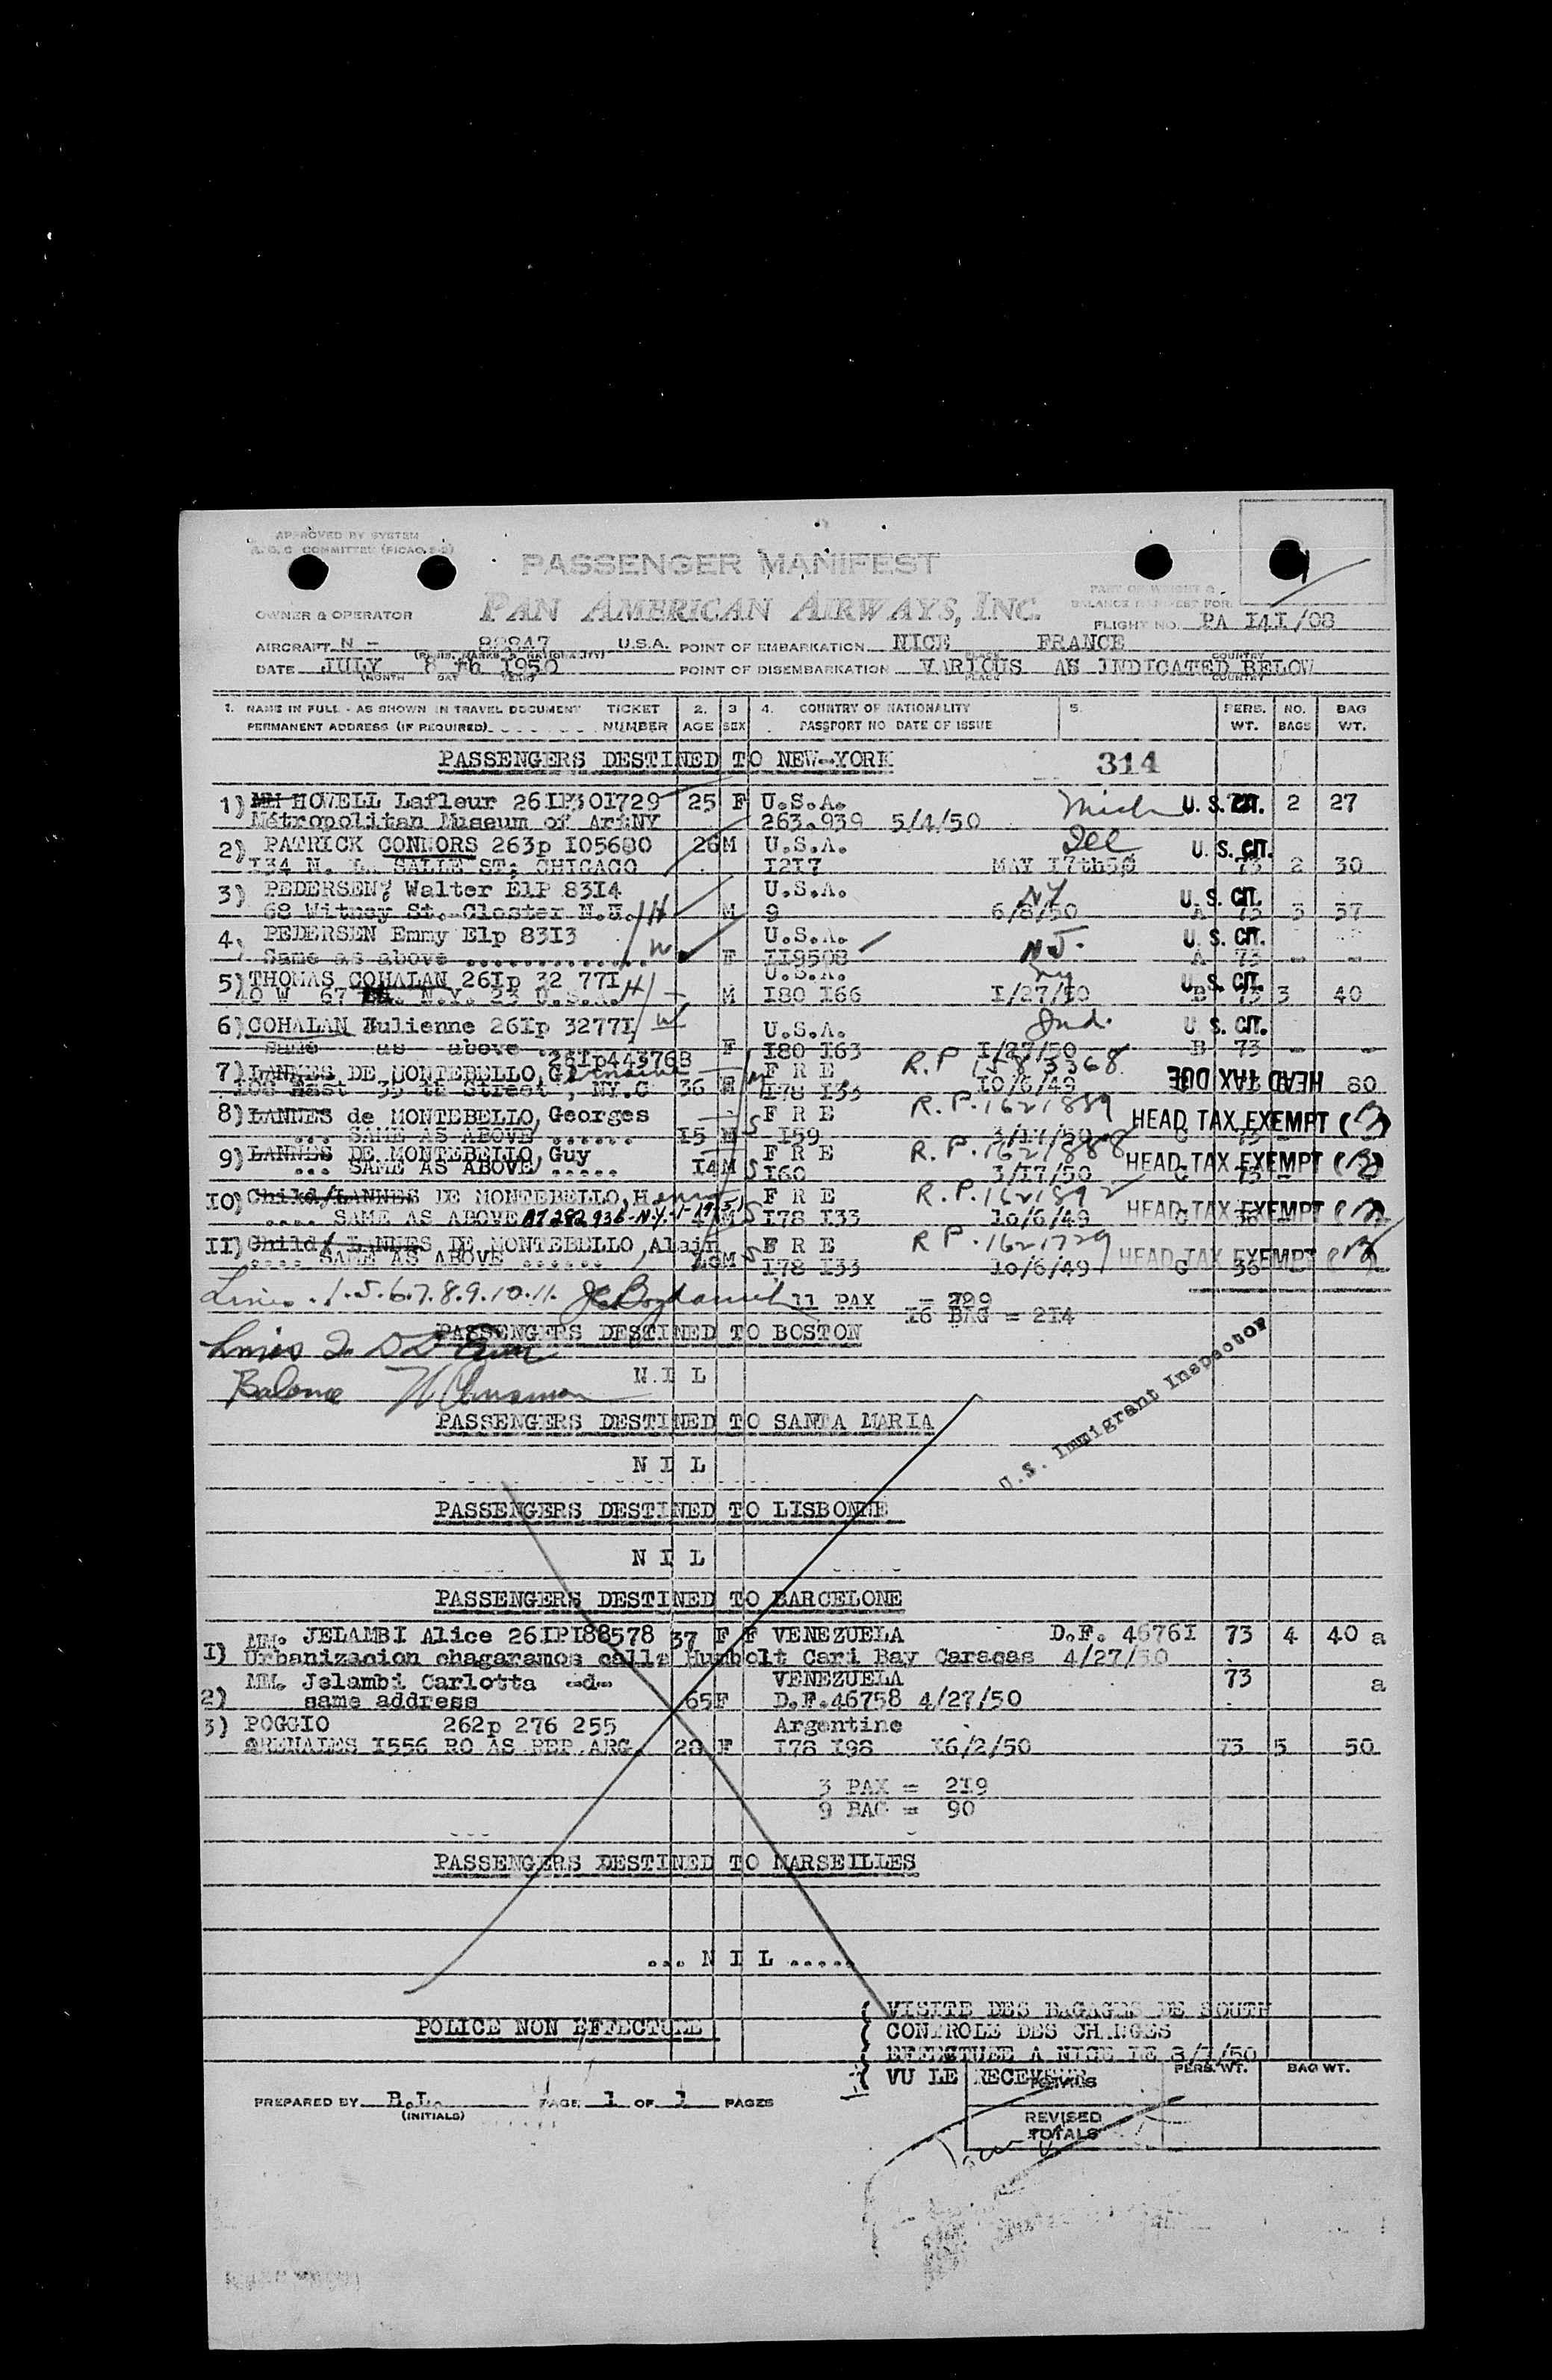 APPROVED BY SYSTEM
A.O.C COMMITTEE (PICAO 2-2)
PASSENGER MANIFEST
PAN AMERICAN AIRWAYS, INC.
OWNER & OPERATOR
PART OF WEIGHT &
BALANCE MANIFEST FOR
FLIGHT NO. PA 141/08
AIRCRAFT N - 88847 U.S.A. POINT OF EMBARKATION NICE FRANCE
DATE JULY 8 th 1950 POINT OF DISEMBARKATION VARIOUS AS INDICATED BELOW
(MONTH DAY YEAR) PLACE COUNTRY
1. NAME IN FULL - AS SHOWN IN TRAVEL DOCUMENT TICKET 2. 3 4. COUNTRY OF NATIONALITY 5. PERS. NO. BAG
PERMANENT ADDRESS (IF REQUIRED) NUMBER AGE SEX PASSPORT NO DATE OF ISSUE WT. BAGS WT.
PASSENGERS DESTINED TO NEW-YORK 314
1) MM HOWELL Lafleur 26IP301729 25 F U.S.A. Mich U.S. CIT. 2 27
Métropolitan Museum of Art NY 263.939 5/4/50
2) PATRICK CONNORS 263p I05680 26 M U.S.A. Ill U.S. CIT.
I34 N. L. SALLE ST; CHICAGO I2I7 MAY I7th50 73 2 30
3) PEDERSEN, Walter E1P 83I4 U.S.A. NY U.S. CIT.
68 Witney St. Closter N.J. H M 9 6/8/50 A 73 3 37
4. PEDERSEN Emmy E1p 83I3 U.S.A. N.J. U.S. CIT.
Same as above .............. W F II9508 A 73 - -
5) THOMAS COHALAN 26Ip 32 77I H U.S.A. NY U.S. CIT.
40 W 67 N.Y. 23 U.S.A. M I80 I66 I/27/50 B 73 3 40
6) COHALAN Julienne 26Ip 3277I W U.S.A. Ind. U.S. CIT.
same as above F I80 I63 I/27/50 B 73 - -
26Ip443768
7) LANNES DE MONTEBELLO, Germaine F R E R.P. 1583368
East 35 th Street, NY.C 36 I78 I33 I0/6/49 HEAD TAX DUE 80
8) LANNES de MONTEBELLO, Georges F R E R.P. 1621889 HEAD TAX EXEMPT
... SAME AS ABOVE ...... I5 M S I59 3/17/50 C 73 -
9) LANNES DE MONTEBELLO, Guy F R E R.P. 1621888 HEAD TAX EXEMPT
... SAME AS ABOVE ..... I4 M S I60 3/17/50 C 73 -
IO) Child/LANNES DE MONTEBELLO, Henry F R E R.P. 1621892 HEAD TAX EXEMPT
.... SAME AS ABOVE M S I78 I33 I0/6/49
II) Child/ LANNES DE MONTEBELLO, Alain F R E R P. 1621729 HEAD TAX EXEMPT
.... SAME AS ABOVE ...... M S I78 I33 I0/6/49 C 36
Lines. 1.5.6.7.8.9.10.11. 11 PAX = 729
16 BAG = 2I4
PASSENGERS DESTINED TO BOSTON
Lines 2
Balance
N I L
U.S. Immigrant Inspector
PASSENGERS DESTINED TO SANTA MARIA
N I L
PASSENGERS DESTINED TO LISBONNE
N I L
PASSENGERS DESTINED TO BARCELONE
I) MM. JELAMBI Alice 26IPI88578 37 F F VENEZUELA D.F. 4676I 73 4 40 a
Urbanizacion chagaramos calle Humbolt Cari Bay Caracas 4/27/50
2) MM. Jelambi Carlotta -d- VENEZUELA 73 a
same address 65 F D.F.46758 4/27/50
3) POGGIO 262p 276 255 Argentine
ARENALES I556 RO AS REP ARG. 28 F I78 I98 I6/2/50 73 5 50
3 PAX = 2I9
9 BAG = 90
PASSENGERS DESTINED TO MARSEILLES
... N I L .....
POLICE NON EFFECTUEE
VISITE DES BAGAGES DE SOUTH
CONTROLE DES CHANGES
EFFECTUEE A NICE LE 8/7/50
VU LE RECEVEUR
PREPARED BY B.L. PAGE 1 OF 1 PAGES
(INITIALS)
PERS. WT. BAG WT.
TOTALS
REVISED
TOTALS